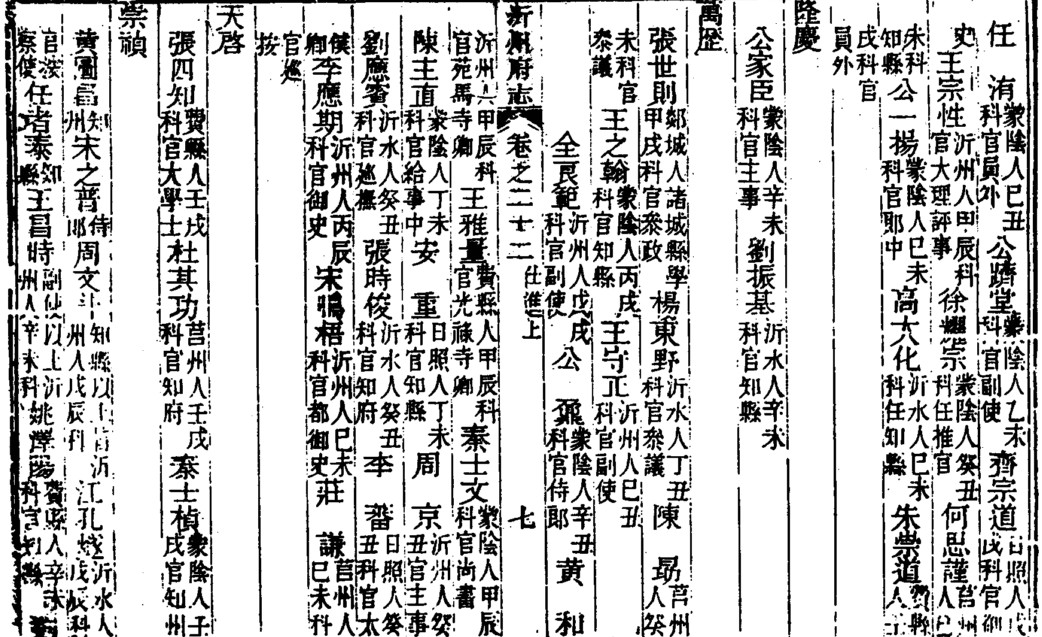 任 洧 蒙陰人己丑科官員外 公躋堂 蒙陰人乙未科官副使 齊宗道 日照人戊戌科官御
史 王宗性 沂州人甲辰科官大理評事 徐宗 蒙陰人癸丑科任推官 何思謹 莒州
朱科知縣 公一揚 蒙陰人己未科官郎中 高大化 沂水人己未科任知縣 朱崇道 費縣人
戌科官員外
隆慶
公家臣 蒙陰人辛未科官主事 劉振基 沂水人辛未科官知縣
萬歷
張世則 郯城人諸城縣學甲戌科官叅政 楊東野 沂水人丁丑科官叅議 陳 莒州人癸
未科官叅議 王之翰 蒙陰人丙戌科官知縣 王守正 沂州人己丑科官副使
全良範 沂州人戊戌科官副使 公鼐 蒙陰人辛丑科官侍郎 黃和
沂州府志 卷之二十二 仕進上 七
沂州人甲辰科官苑馬寺卿 王雅量 費縣人甲辰科官光祿寺卿 秦士文 蒙陰人甲辰科官尚書
陳主直 蒙陰人丁未科官給事中 安重 日照人丁未科官知縣 周京 沂州人癸丑官主事
劉應賓 沂水人癸丑科官巡撫 張時俊 沂水人癸丑科官知府 李蕃 日照人癸丑科官太
僕卿 李應期 沂州人丙辰科官御史 宋鳴梧 沂州人己未科官都御史 莊謙 莒州人己未科
官巡按
天啓
張四知 費縣人壬戌科官大學士 杜其功 莒州人壬戌科官知府 秦士楨 蒙陰人壬戌官知州
崇禎
黃圖昌 知州 宋之普 侍郎 周文斗 知縣以上皆沂州人戊辰科 江孔 沂水人戊辰科
官按察使 任者泰 知縣 王昌時 副使以上沂州人辛未科 姚澤 費縣人辛未科官知縣